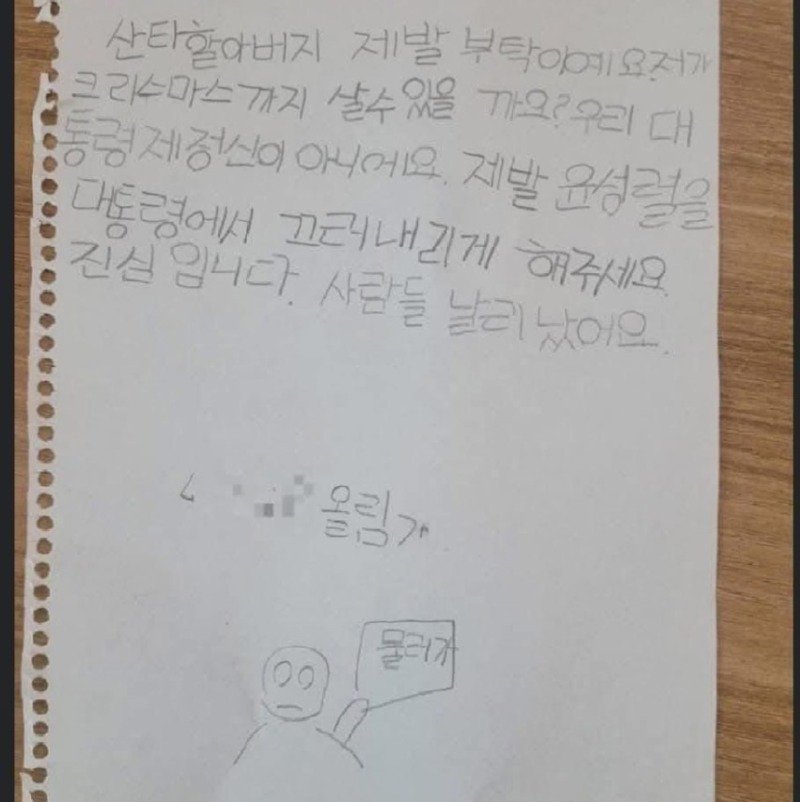 산타할아버지 제발 부탁이예요. 저가
크리수마스까지 살수있을 까요? 우리 대
통령제정신이 아니어요. 제발 윤성럴을
대통령에서 끄터내리게 해주세요.
진실 입니다. 사람들 날리 났어요.
올림
물러가